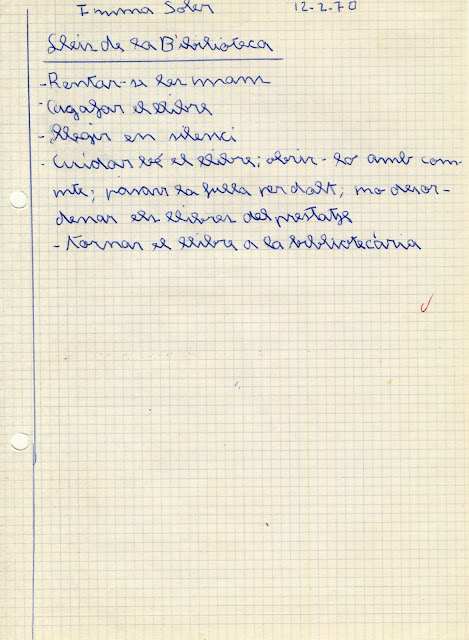 Emma Soler 12-2-70
Lleis de la Biblioteca
- Rentar-se les mans
- Cagafar el llibre
- Llegir en silenci
- Cuidar bé el llibre; obrir-lo amb com-
mte; pasar la fulla per dalt; no desor-
denar els llibres del prestatje
- tornar el llibre a la bibliotecària